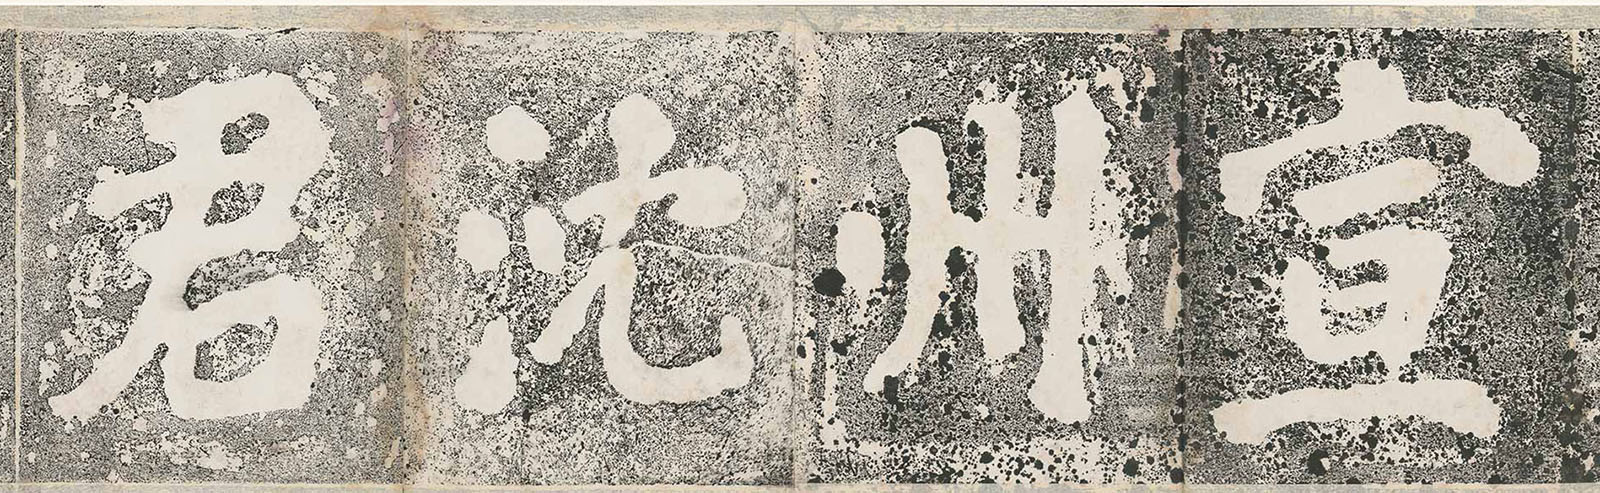 宣州沈君